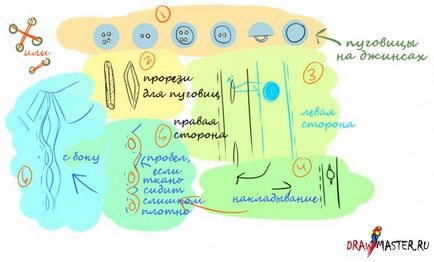 1
или
пуговицы
на джинсах
2
прорези
для пуговиц
3
левая
сторона
правая
сторона
5
пробел,
если
ткань
сидит
слишком
плотно
с боку
6
4
накладывание
DRAWMASTER.RU